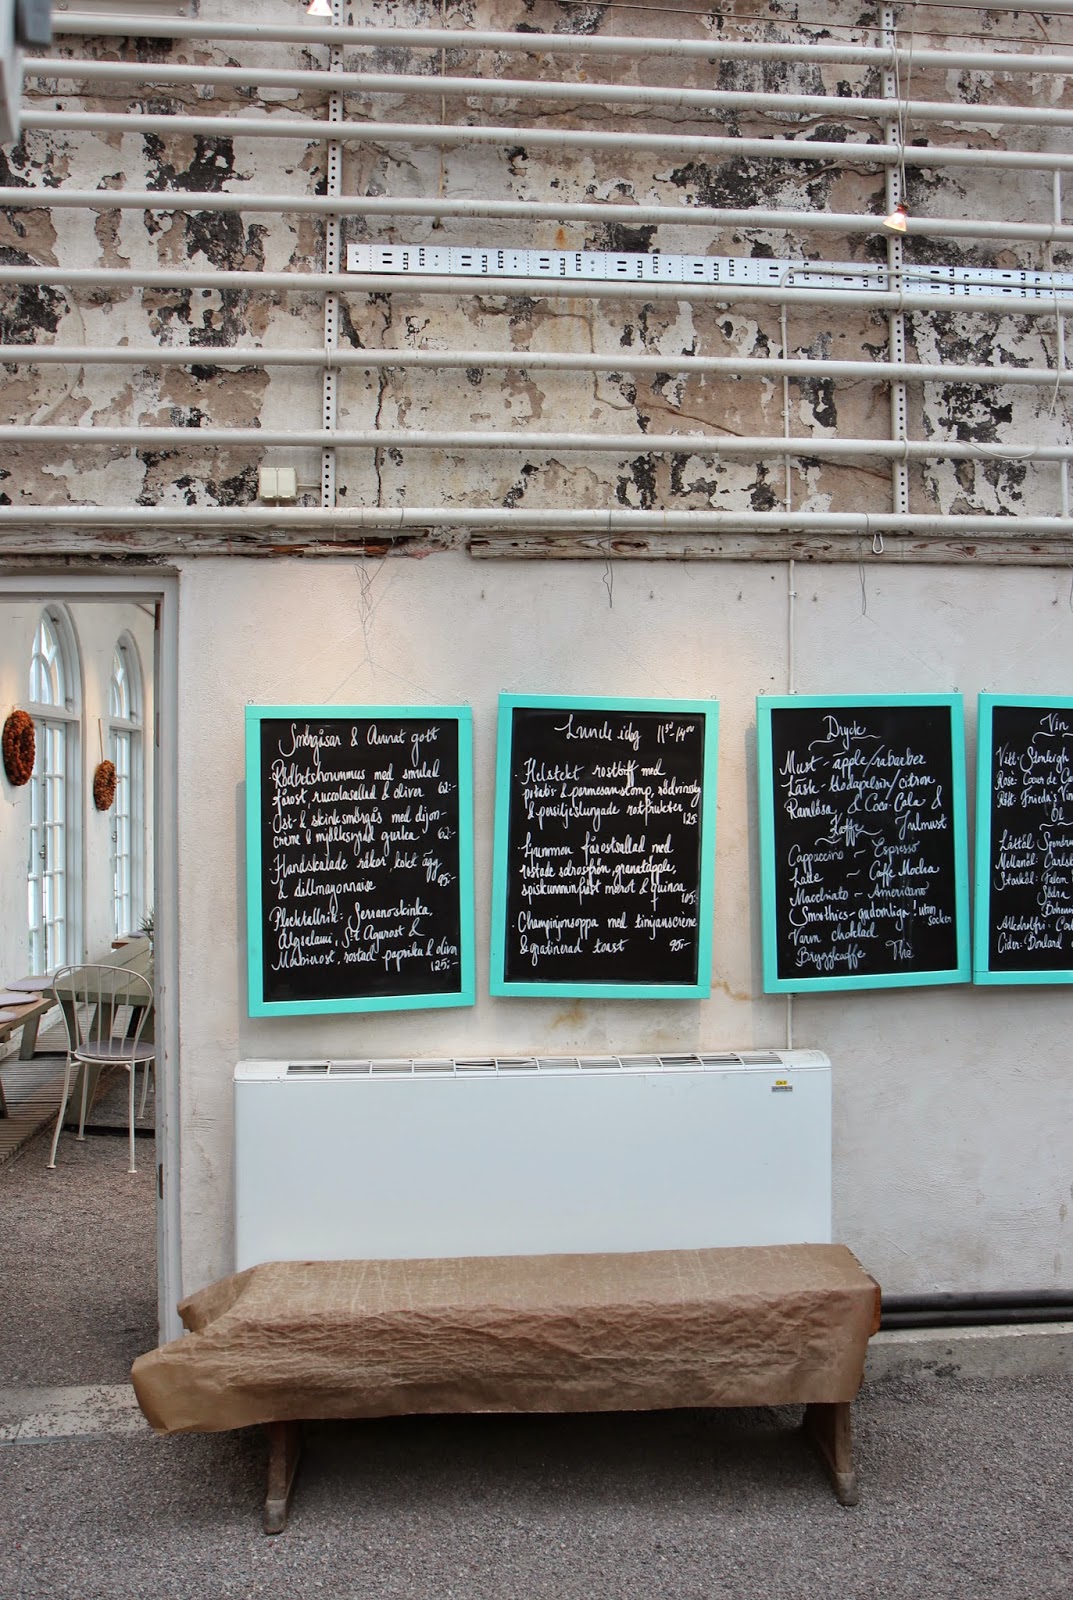 Smörgåsar & Annat gott
· Rödbetshoummus med smulad
fårost ruccolasallad & oliver 62:-
· Ost- & skinksmörgås med dijon-
créme & mjölksyrad gurka 62:-
· Handskalade räkor, kokt ägg
& dillmajonnaise 95:-
· Plocktallrik: Serranoskinka,
Älgsalami, S:t Agurost &
Marbierost, rostad paprika & oliver
125:-
Lunch idag 11³⁰-14⁰⁰
· Helstekt rostbiff med
potatis- & parmesanstomp, rödvinssky
& persiljeslungade rotfrukter
125:-
· Ljummen fårostsallad med
rostade solrosfrön, granatäpple,
spiskumminfräst morot & quinoa
105:-
· Championjonsoppa med timjanscréme
& gratinerad toast 95:-
Dryck
Must - äpple/rabarber
Läsk - Blodapelsin/citron
Ramlösa & Coca-Cola &
Kaffe Julmust
Cappuccino - Espresso
Latte - Caffe Mocha
Macchiato - Americano
Smoothies - gudomliga! utan
socker
Varm choklad
Bryggkaffe Thé
Vin
Vitt:
Rosé:
Rött: Frieda's Vin
Öl
Lättöl:
Mellanöl: Carlsb
Starköl: Falcon
Södra
Alkoholfri: Carl
Cider: